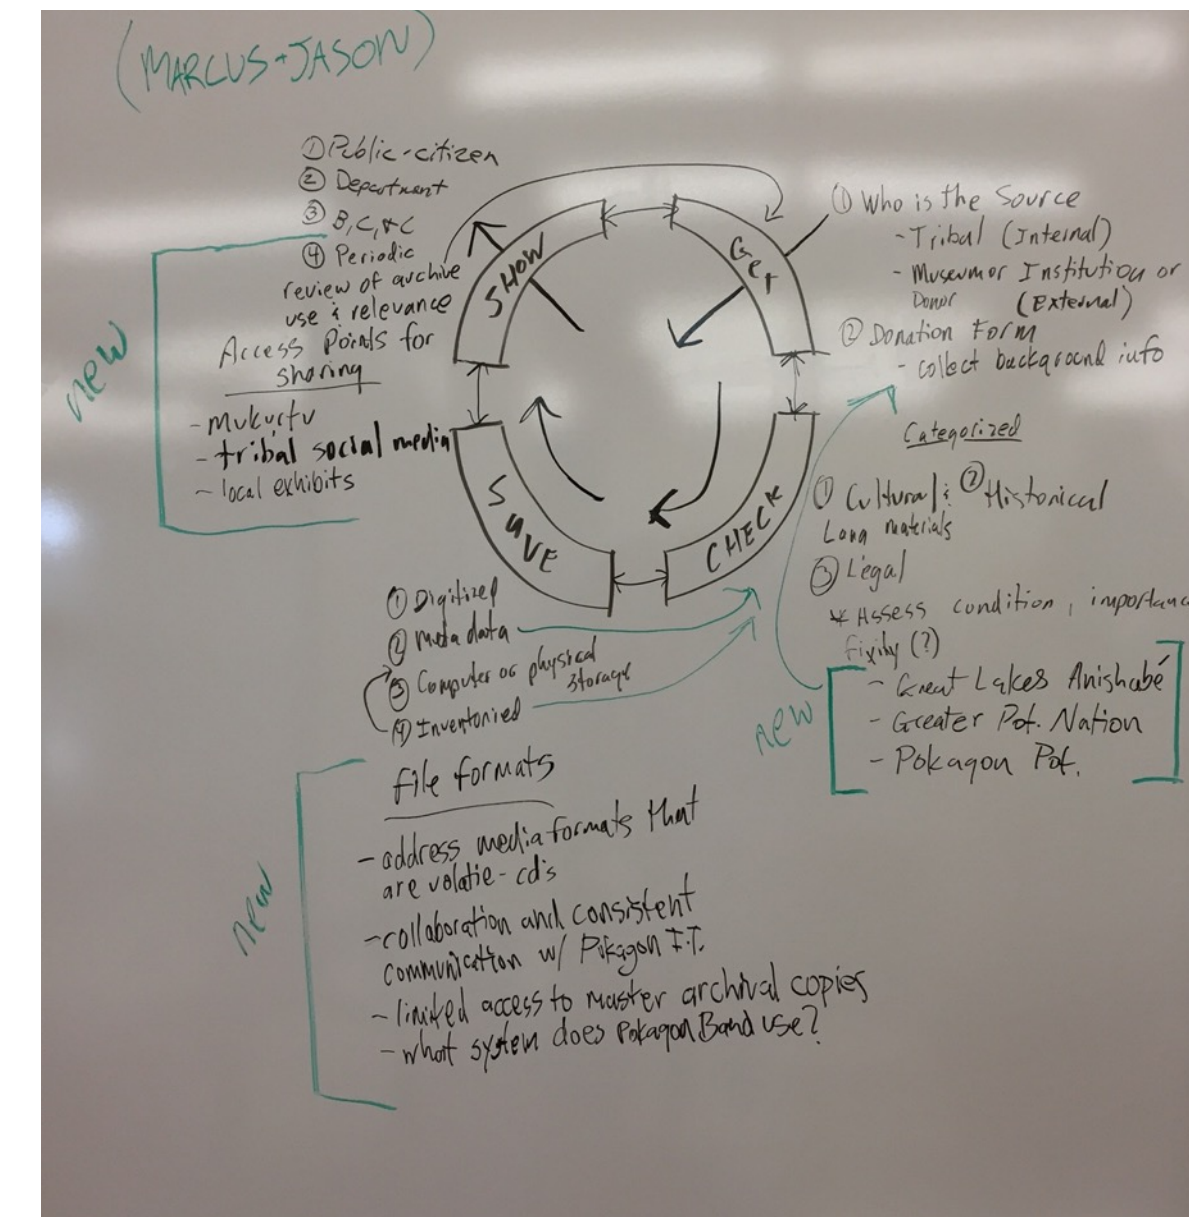 (MARCUS + JASON)
① Public-citizen
② Department
③ B, C, & C
④ Periodic
review of archive
use & relevance
Access Points for
sharing
- Mukurtu
- tribal social media
- local exhibits
new
SHOW
GET
CHECK
SAVE
① Who is the Source
- Tribal (Internal)
- Museum or Institution or
Donor (External)
② Donation Form
- collect background info
Categorized
① Cultural & ② Historical
Lang materials
③ Legal
* Assess condition, importance
fixity (?)
new
- Great Lakes Anishabé
- Greater Pot. Nation
- Pokagon Pot.
① Digitized
② Meta data
③ Computer or physical
storage
④ Inventoried
new
file formats
- address media formats that
are volatie - cd's
- collaboration and consistent
communication w/ Pokagon I.T.
- limited access to master archival copies
- what system does Pokagon Band use?